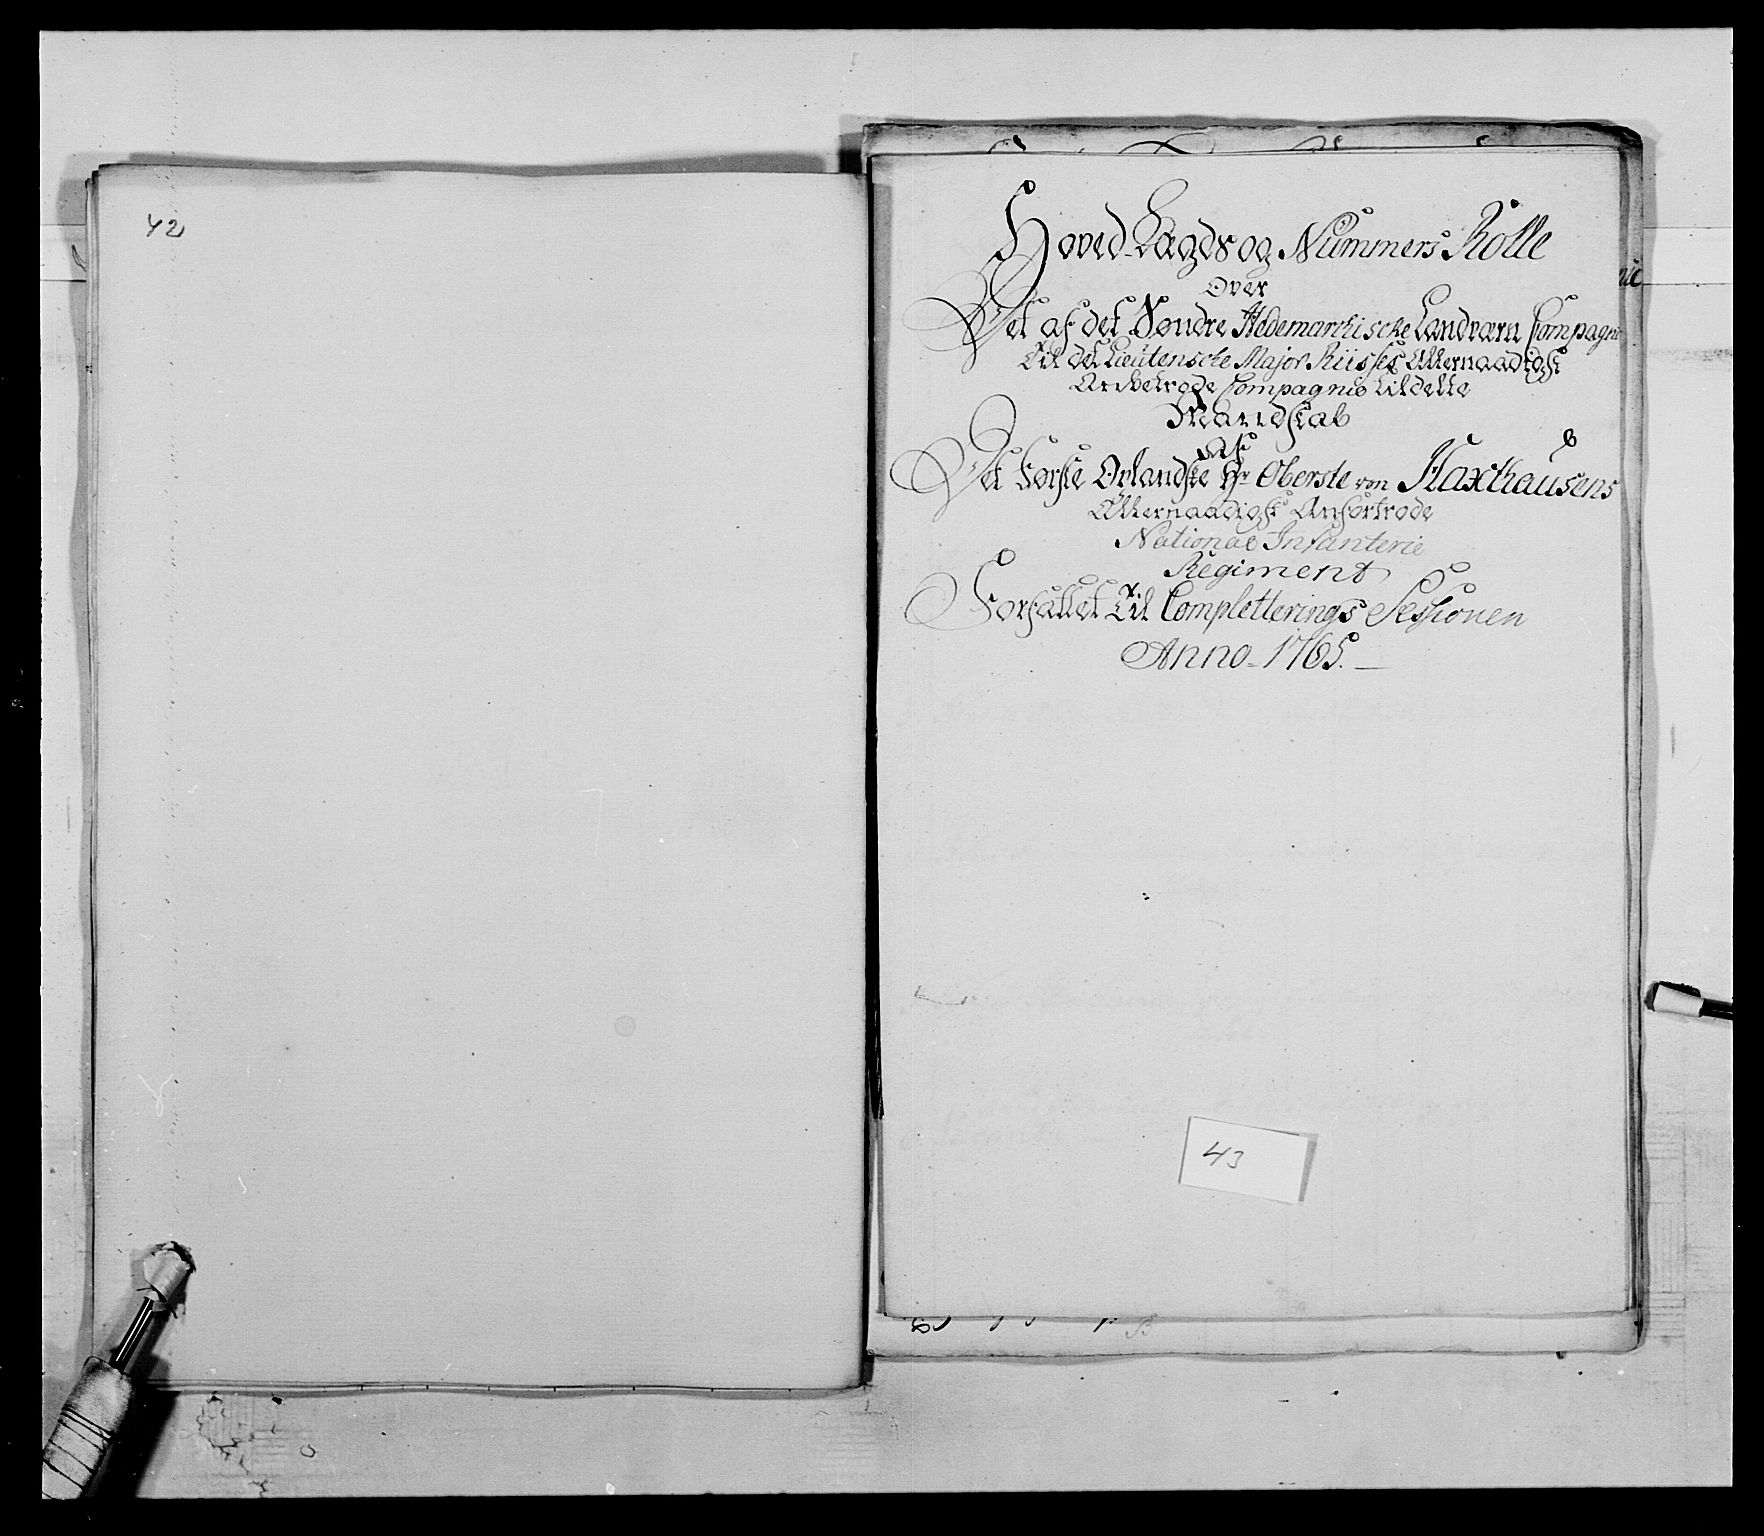 42
Hoved-Lægds og Nummers Rolle
Over
Det af det Søndre Hedemarkiscke Landværn Compagnie
Til det Lieutenscke Major Riisses Allernaadigst
Anbetrode Compagnie tildelte
Mandskab
Af
Det første Oplandske Hr Oberste von Haxthausens
Allernaadigst Anfortrode
National Infanterie
Regiment
Forfattet Til Completterings Sessionen
Anno-1765.
43